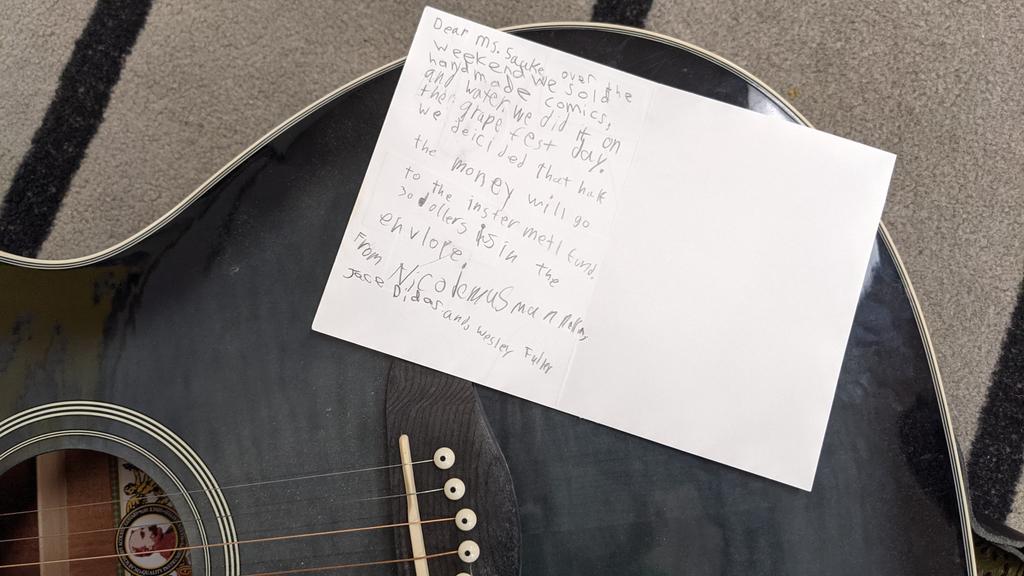 Dear Ms. Sauke, over the
weekend we sold
handmade comics,
and water, we did it on
the grape fest day.
we deicided that halk
the money will go
to the instermetl fund.
30 dollers is in the
envlope.
From Nicodemus
Jase Didas and, Wesley Fuller